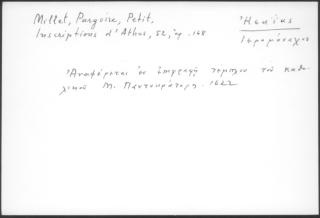 Millet, Pargoire, Petit,
Inscriptions d'Athos, 52, ἀρ. 168
Ἡσαΐας
Ἱερομόναχος
Ἀναφέρεται ἐν ἐπιγραφῇ τέμπλου τοῦ καθο-
λικοῦ Μ. Παντοκράτορος. 1622